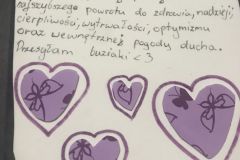 najszybszego powrotu do zdrowia, nadziei,
cierpliwości, wytrwałości, optymizmu
oraz wewnętrznej pogody ducha.
Przesyłam buziaki <3